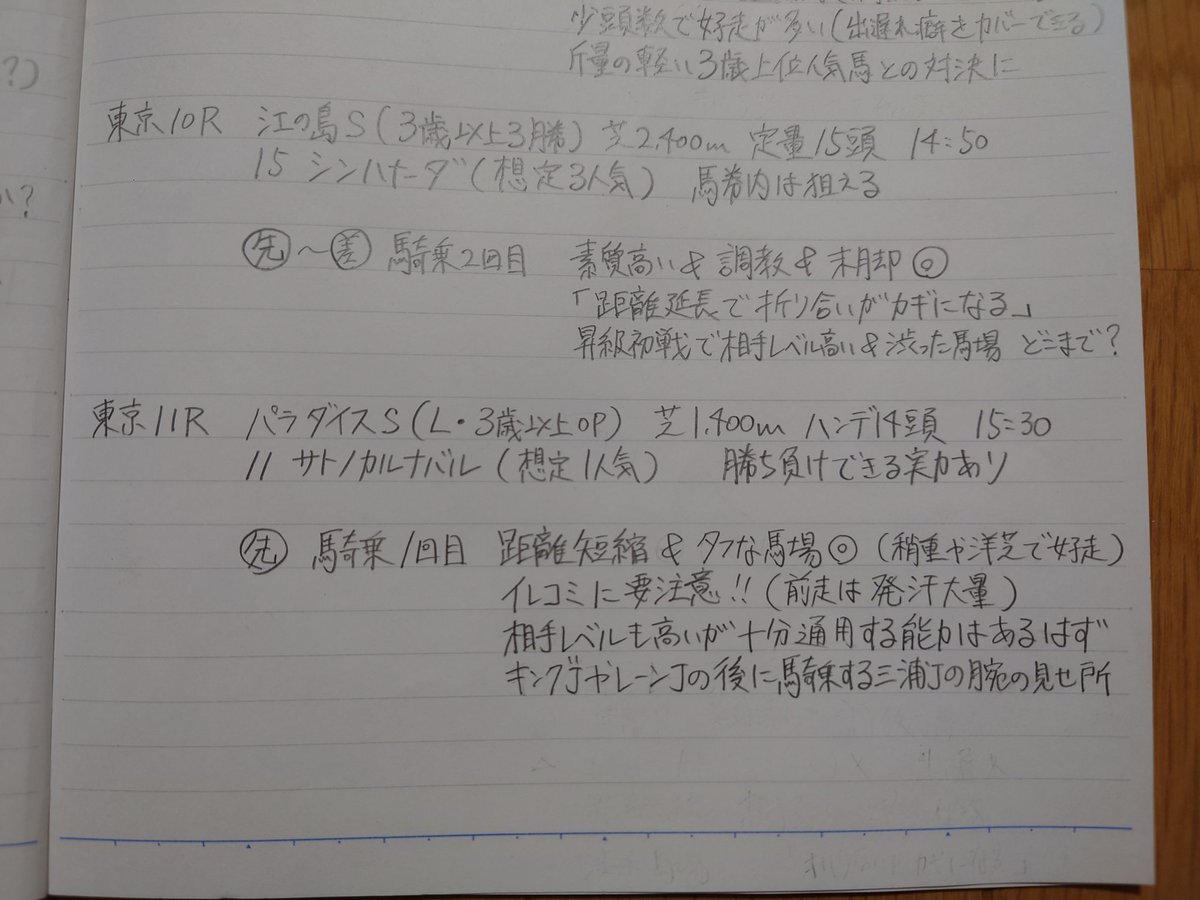 少頭数で好走が多い(出遅れ癖をカバーできる)
斤量の軽い3歳上位人気馬との対決に
?)
東京10R 江の島S(3歳以上3勝) 芝2,400m 定量15頭 14:50
15 シンハナーダ(想定3人気) 馬券内は狙える
い?
先〜差 騎乗2回目 素質高い&調教&末脚◎
「距離延長で折り合いがカギになる」
昇級初戦で相手レベル高い&渋った馬場 どこまで?
東京11R パラダイスS(L・3歳以上OP) 芝1,400m ハンデ14頭 15:30
11 サトノカルナバル(想定1人気) 勝ち負けできる実力あり
先 騎乗1回目 距離短縮&タフな馬場◎(稍重や洋芝で好走)
イレコミに要注意!!(前走は発汗大量)
相手レベルも高いが十分通用する能力はあるはず
キングJやレーンJの後に騎乗する三浦Jの腕の見せ所